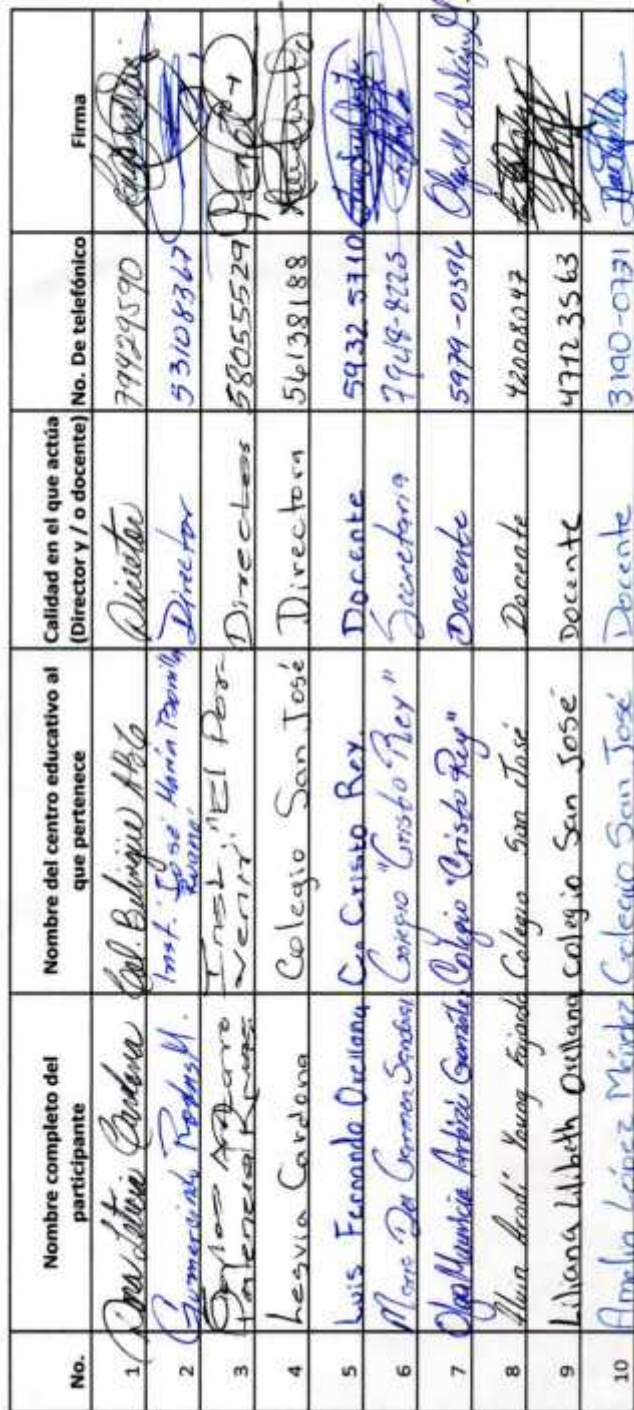 No. Nombre completo del participante Nombre del centro educativo al que pertenece Calidad en el que actúa (Director y / o docente) No. De telefónico Firma
1 Leticia Cardona Col. Bilingüe Director 79429590
2 Gumercindo Rodas M. Inst. "José María Bonilla Ruano" Director 53108367
3 Carlos Amparo Palencia Inst. "El Porvenir" Director 58055529
4 Lesvia Cardona Colegio San José Directora 56138188
5 Luis Fernando Orellana C. Cristo Rey. Docente 5932 5710
6 María Del Carmen Sandoval Colegio "Cristo Rey" Secretaria
7 Olga Mauricia González Colegio "Cristo Rey" Docente 5979-0396
8 Young Fajardo Colegio San José Docente 42008047
9 Liliana Lilibeth Orellana Colegio San José Docente 47123563
10 Amalia López Méndez Colegio San José Docente 3190-0731